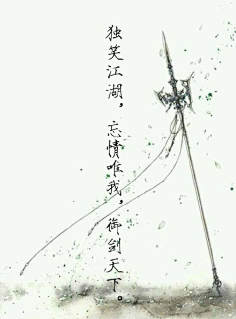 独笑江湖，忘情唯我，御剑天下。